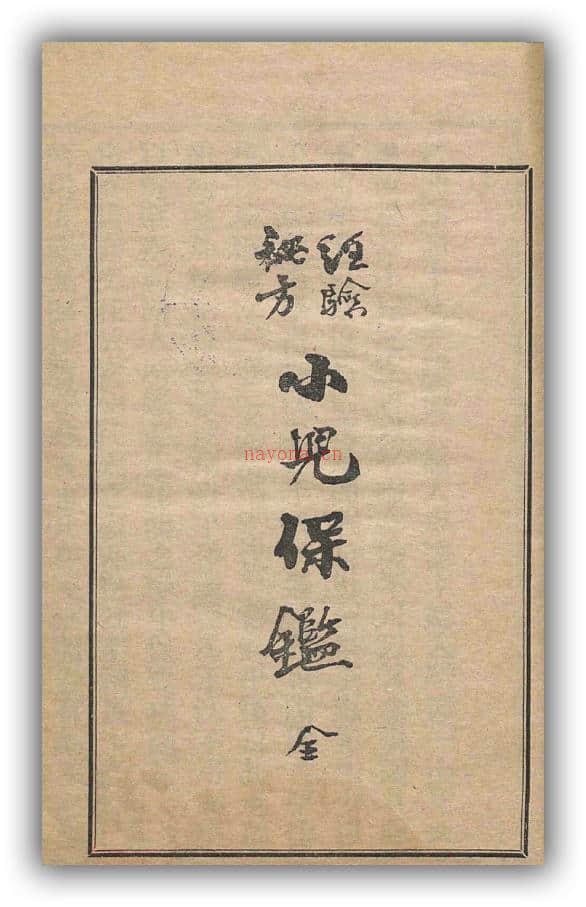 經驗
秘方
小兒保鑑
全
nayona.cn